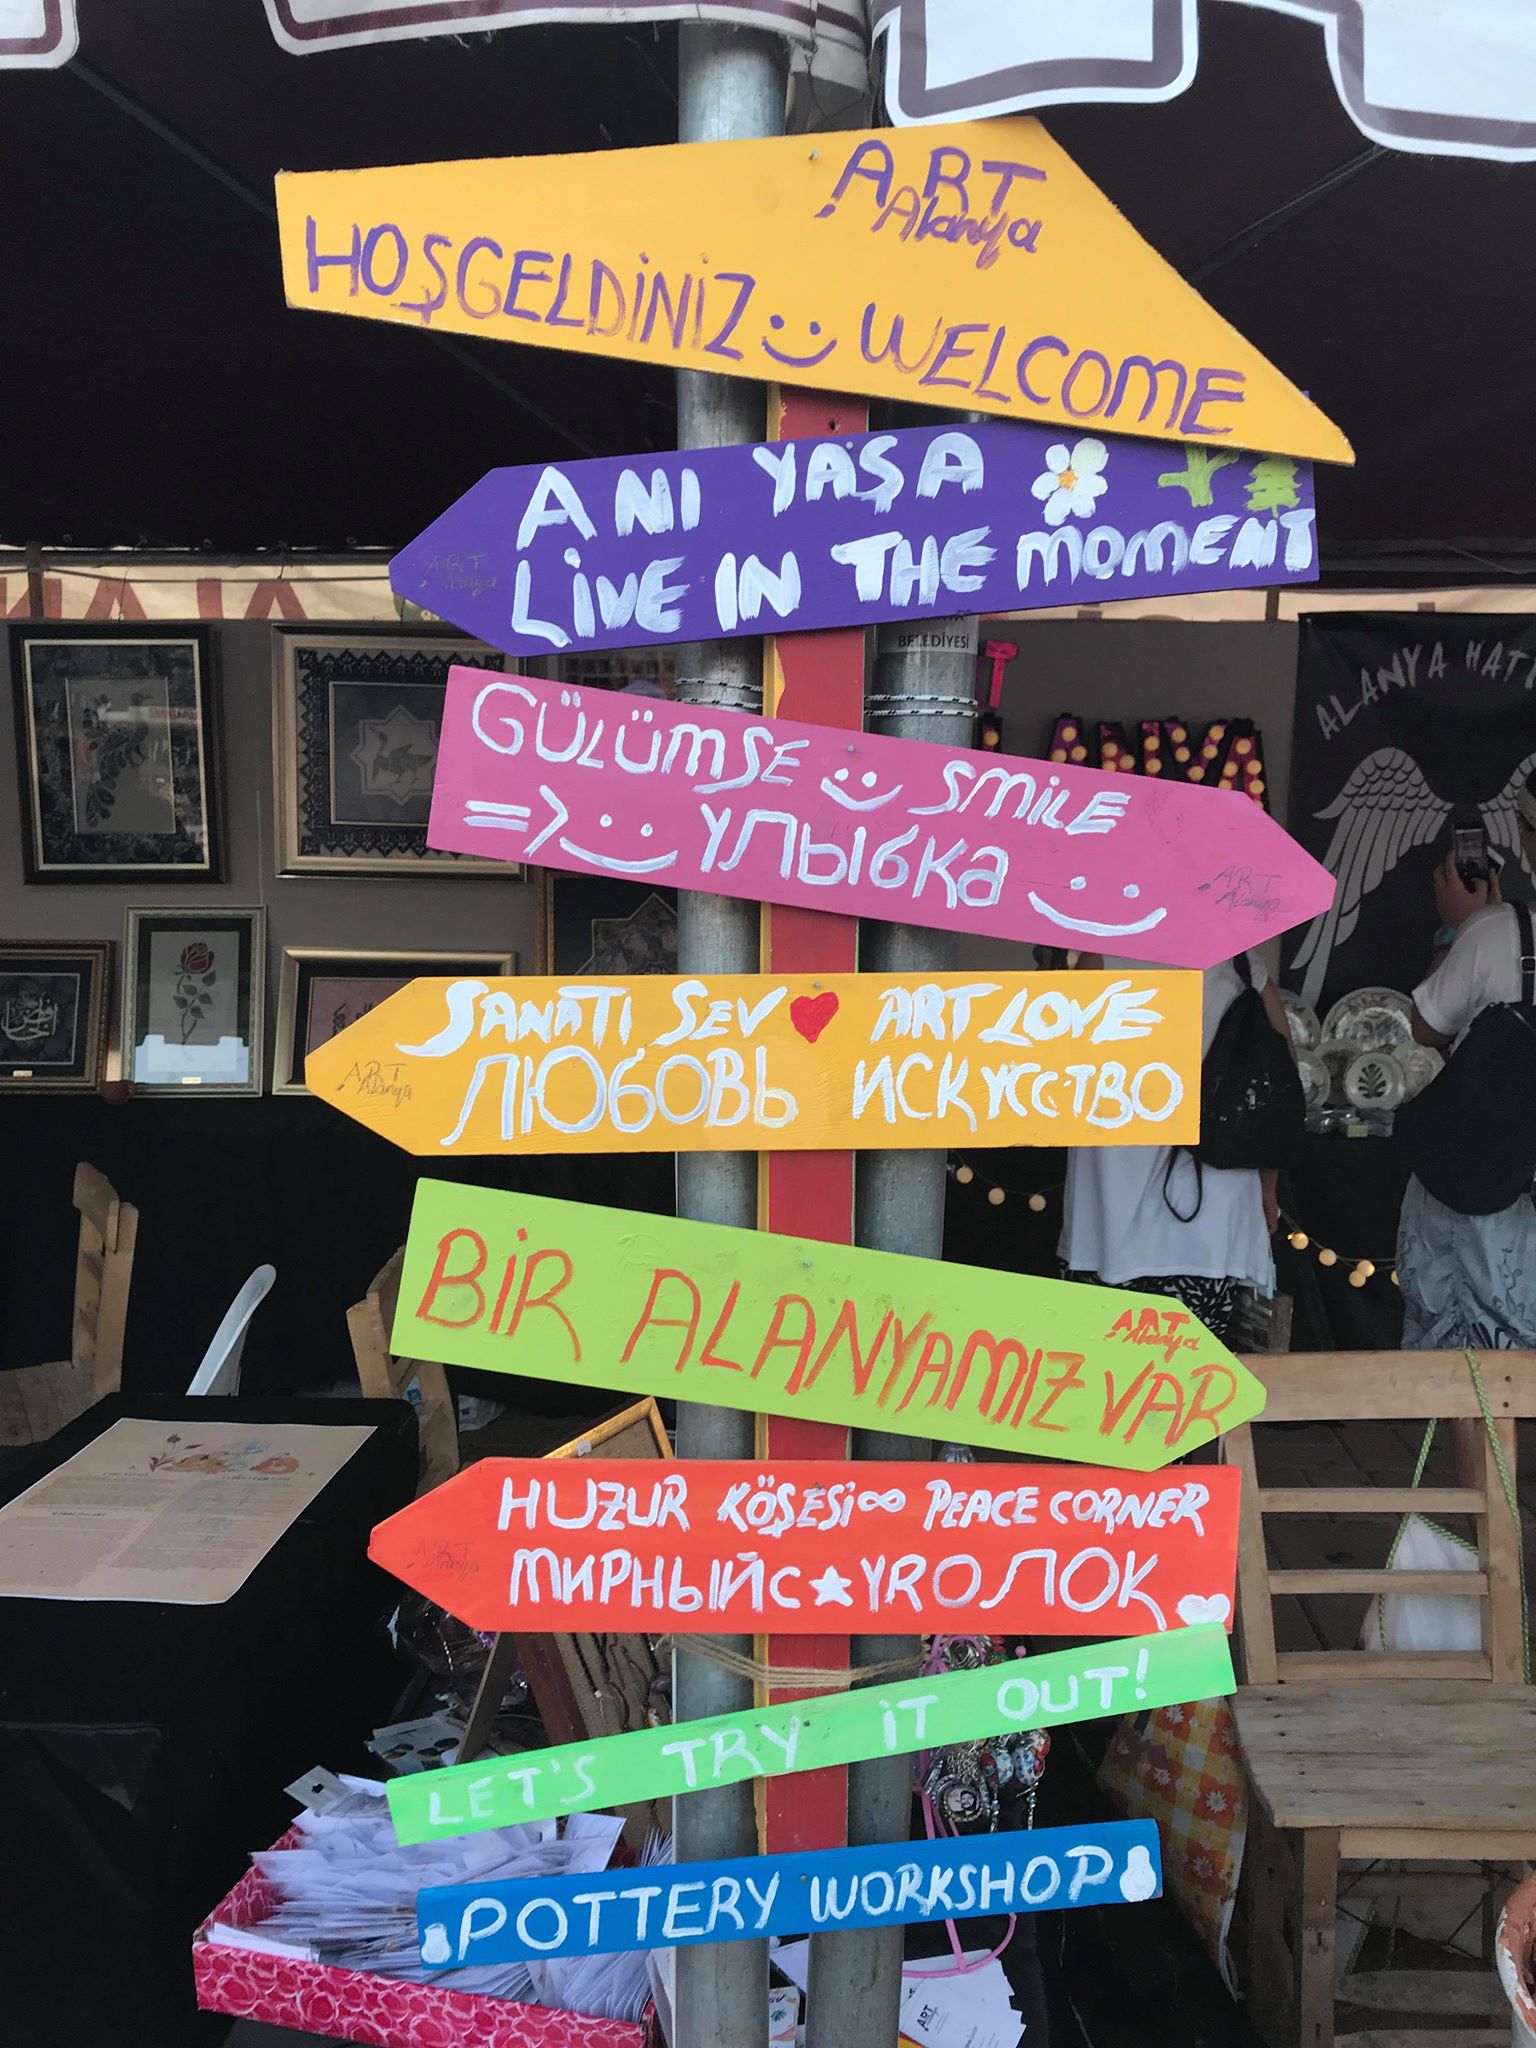 ART
Alanya
HOŞGELDİNİZ WELCOME
ANI YAŞA
LİVE IN THE MOMENT
ART
Alanya
BELEDİYESİ
GÜLÜMSE SMİLE
=> УЛЫбКа
ART
Alanya
ALANYA
ALANYA HAT
SANATI SEV ART LOVE
ЛЮбОВЬ ИСКУССТВО
ART
Alanya
BİR ALANYAMIZ VAR
ART
Alanya
HUZUR KÖŞESİ ∞ PEACE CORNER
МИРНЫЙС YRОЛОК
ART
Alanya
LET'S TRY İT OUT!
POTTERY WORKSHOP
ART